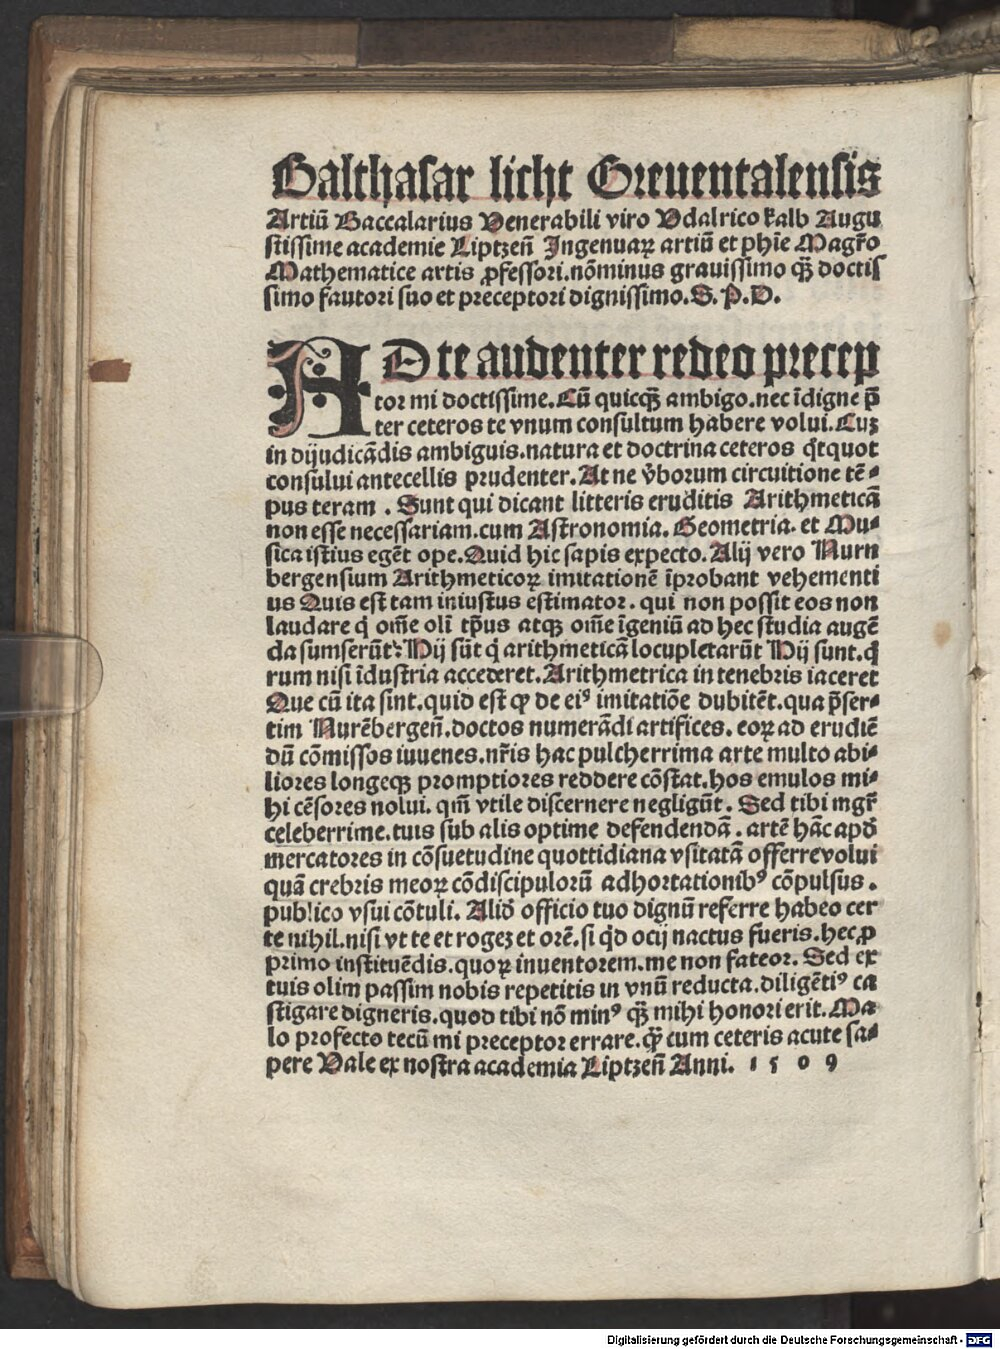 Balthasar licht Greuentalensis
Artiū Baccalarius Venerabili viro Vdalrico kalb Augu
stissime academie Liptzeñ Ingenuaꝝ artiū et phīe Magr̄o
Mathematice artis ꝓfessori.nōminus grauissimo qꝫ̄ doctis
simo fautori suo et preceptori dignissimo.S.P.D.
AD te audenter redeo precep
tor mi doctissime.Cū quicqꝫ̄ ambigo.nec īdigne p̄
ter ceteros te vnum consultum habere volui.Cuꝫ
in dijudicādis ambiguis.natura et doctrina ceteros q̄tquot
consului antecellis prudenter.At ne v̄borum circuitione tē⸗
pus teram . Sunt qui dicant litteris eruditis Arithmeticā
non esse necessariam.cum Astronomia. Geometria. et Mu⸗
sica istius egēt ope.Quid hic sapis expecto.Alij vero Nurn
bergensium Arithmeticoꝝ imitationē īprobant vehementi
us Quis est tam iniustus estimator. qui non possit eos non
laudare q̇ om̄e oli t̄pus atqꝫ om̄e īgeniū ad hec studia augē
da sumserūt: Hij sūt q̇ arithmeticā locupletarūt Hij sunt.q̄
rum nisi īdustria accederet.Arithmetrica in tenebris iaceret
Que cū ita sint.quid est ꝙ de eiꝰ imitatiōe dubitēt.qua p̄ser⸗
tim Nurēbergeñ.doctos numerādi artifices. eoꝝ ad erudiē
dū cōmissos iuuenes.nr̄is hac pulcherrima arte multo abi⸗
liores longeqꝫ promptiores reddere cōstat.hos emulos mi⸗
hi cēsores nolui. qm̄ vtile discernere negligūt. Sed tibi mgr̄
celeberrime.tuis sub alis optime defendendā . artē hāc apd̄
mercatores in cōsuetudine quottidiana vsitatā offerrevolui
quā crebris meoꝝ cōdiscipulorū adhortationibꝰ cōpulsus .
publico vsui cōtuli. Alid̄ officio tuo dignū referre habeo cer
te nihil.nisi vt te et rogeꝫ et orē.si q̇d ocij nactus fueris.hec.ꝓ
primo instituēdis.quoꝝ inuentorem.me non fateor. Sed ex
tuis olim passim nobis repetitis in vnū reducta.diligētiꝰ ca
stigare digneris.quod tibi nō minꝰ qꝫ̄ mihi honori erit. Ma
lo profecto tecū mi preceptor errare.qꝫ̄ cum ceteris acute sa⸗
pere Vale ex nostra academia Liptzeñ Anni. 1 5 0 9
Digitalisierung gefördert durch die Deutsche Forschungsgemeinschaft - DFG